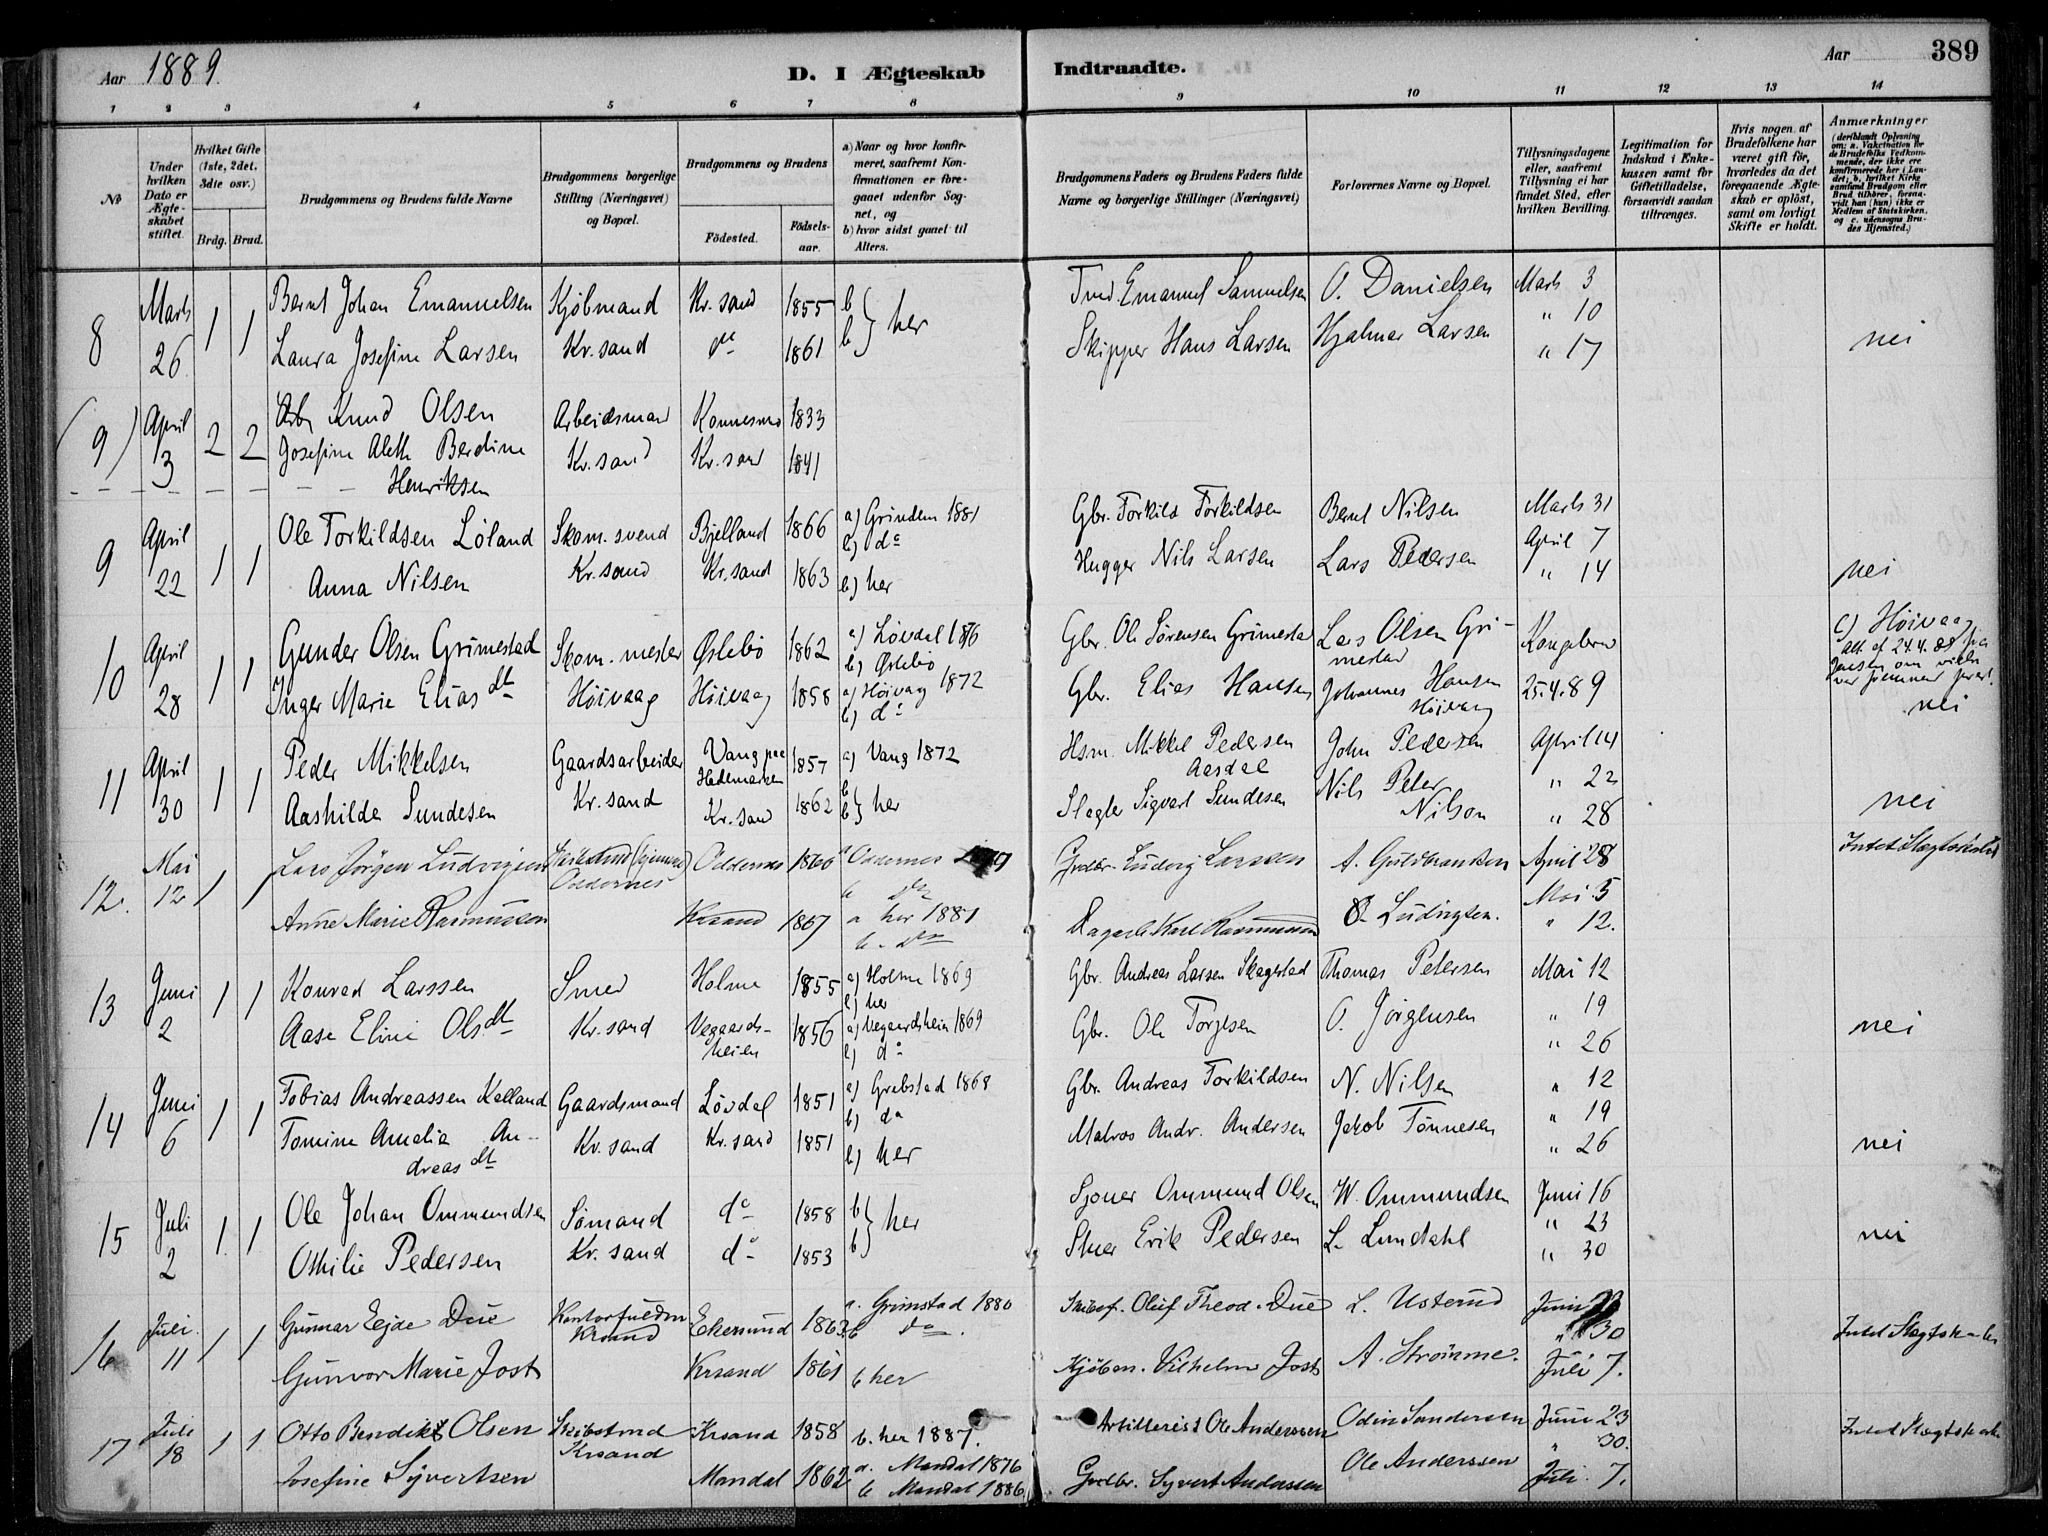 Aar 1889.
D. I Ægteskab Indtraadte.
Aar 389
1 2 3 4 5 6 7 8 9 10 11 12 13 14
№
Under hvilken Dato er Ægteskabet stiftet.
Hvilket Gifte (1ste, 2det, 3die osv.)
Brdg. Brud.
Brudgommens og Brudens fulde Navne
Brudgommens borgerlige Stilling (Næringsvei) og Bopæl.
Brudgommens og Brudens
Fødested. Fødselsaar.
a) Naar og hvor konfirmeret, saafremt Konfirmationen er foregaaet udenfor Sognet, og
b) hvor sidst gaaet til Alters.
Brudgommens Faders og Brudens Faders fulde Navne og borgerlige Stillinger (Næringsvei)
Forlovernes Navne og Bopæl.
Tillysningsdagene eller, saafremt Tillysning ei har fundet Sted, efter hvilken Bevilling.
Legitimation for Indskud i Enkekassen samt for Giftetilladelse, forsaavidt saadan tiltrænges.
Hvis nogen af Brudefolkene har været gift før, hvorledes da det foregaaende Ægteskab er opløst, samt om lovligt Skifte er holdt.
Anmærkninger (deriblandt Oplysning om: a. Vaksination for de Brudefolks Vedkommende, der ikke ere konfirmerede her i Landet; b. hvilket Kirkesamfund Brudgom eller Brud tilhører, forsaavidt han (hun) ikke er Medlem af Statskirken, og c. udensogns Brudes Hjemsted.)
8 Marts 26 1 1 Bernt Johan Emanuelsen Kjøbmand Kr.sand 1855 b } her Emanuel Samuelsen O. Danielsen Marts 3
" 10
Laura Josefine Larsen Kr.sand do 1861 b Skipper Hans Larsen Hjalmar Larsen " 17 nei
(9) April 3 2 2 Knud Olsen Arbeidsmand Konnesmo 1833
Josefine Aleth Berdine Kr.sand Kr.sand 1841
Henriksen
9 April 22 1 1 Ole Torkildsen Løland Skom. svend Bjelland 1866 a) Grindem 1881 Gbr. Torkild Torkildsen Bernt Nilsen Marts 31
b) do April 7
Anna Nilsen Kr.sand Kr.sand 1863 b) her Hugger Nils Larsen Lars Pedersen " 14 nei
10 April 28 1 1 Gunder Olsen Grimestad Skom. mester Øslebø 1862 a) Løvdal 1876 Gbr. Ole Sørensen Grimestad Lars Olsen Grimestad Kongebrev c) Høivaag
b) Øslebø
Inger Marie Eliasdt Høivaag Høivaag 1858 a) Høivag 1872 Gbr. Elias Hansen Johannes Hansen 25.4.89
b) do Høivaag nei
11 April 30 1 1 Peder Mikkelsen Gaardsarbeider Vang paa Hedemarken 1857 a) Vang 1872 Hsm. Mikkel Pedersen Aasdal John Pedersen April 14
b } her " 22
Aashilde Sundesen Kr.sand Kr.sand 1862 b Slagter Sigvart Sundesen Nils Peter Nilson " 28 nei
12. Mai 12 1 1 Lars Jørgen Ludvigsen Oddernes Oddernes 1866 a Oddernes Gaardbr. Ludvig Larssen A. Guldbrandsen April 28 Intet Slægtskab
b do Mai 5
Anne Marie Rasmussen Krsand 1867 a her 1881 Karl Rasmussen Ludvigsen. " 12.
b. do
13 Juni 2 1 1 Konrad Larssen Smed Holme 1855 a) Holme 1869 Gbr. Andreas Larsen Skagestad Thomas Petersen Mai 12
b) her " 19
Aase Eline Olsdt Kr.sand Vegaardsheien 1856 a) Vegaardsheia 1869 Gbr. Ole Torjesen O. Jörgensen " 26 nei
b) do
14 Juni 6 1 1 Tobias Andreassen Kelland Gaardsmand Løvdal 1851 a) Grebstad 1868 Gbr. Andreas Torkildsen N. Nilsen " 12
b) do " 19
Tomine Amalia Andreasdt Kr.sand Kr.sand 1851 b) her Matros Andr. Andersen Jakob Tønnesen " 26 nei
15 Juli 2 1 1 Ole Johan Ommundsen Sømand do 1858 b } her Ommund Olsen W. Ommundsen Juni 16
" 23
Othilie Pedersen Kr.sand do 1853 b Erik Pedersen L. Lundahl " 30 nei
16 Juli 11 1 1 Gunnar Eejde Due Krsand Ekersund 1863 a. Grimstad 1880 Skibsf. Oluf Theod. Due L. Usterud Juni
b do. " 30 Intet Slægtskab
Gunvor Marie Jost Krsand 1861 b her Kjøbm. Vilhelm Jost A. Strömme. Juli 7.
17 Juli 18 1 1 Otto Bendikt Olsen Skibstmd Krsand Krsand 1858 b. her 1887. Artillerist Ole Anderssen Odin Sandersen Juni 23 Intet Slægtskab
" 30.
Josefine Syvertsen Mandal 1862 a. Mandal 1876 Gaardbr. Syvert Anderssen Ole Anderssen Juli 7.
b Mandal 1886.